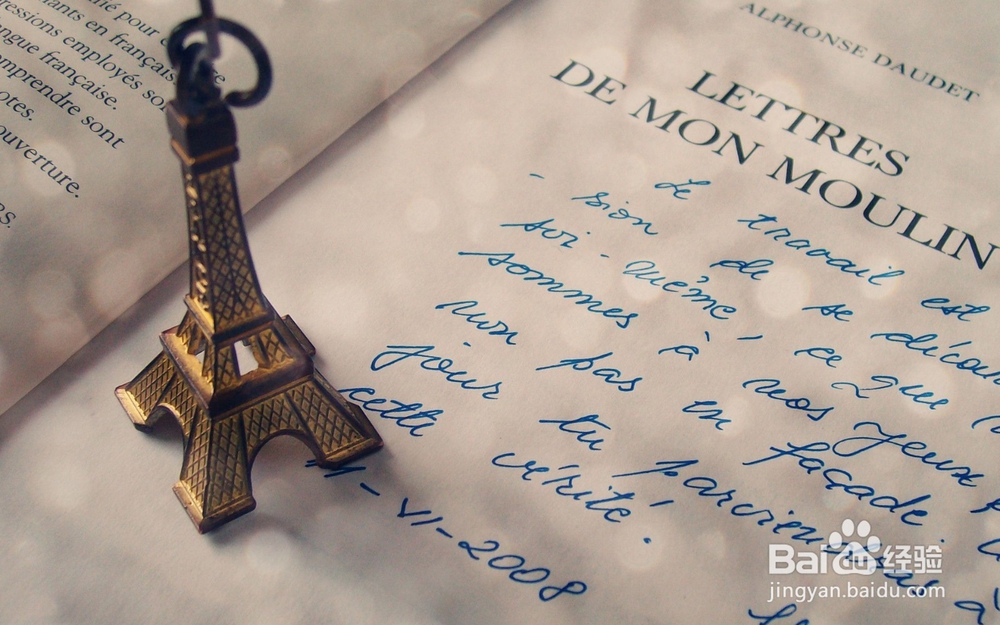 pour
ants en français
ressions employés so
ngue française.
omprendre sont
otes.
ouverture.
RS.
ALPHONSE DAUDET
LETTRES
DE MON MOULIN
Le travail est
- sion de se découv
soi-même, ce qui
sommes à nos yeux
non pas en façade
jour tu parviendras à
cette vérité.
VI-2008
Bai经验
jingyan.baidu.com